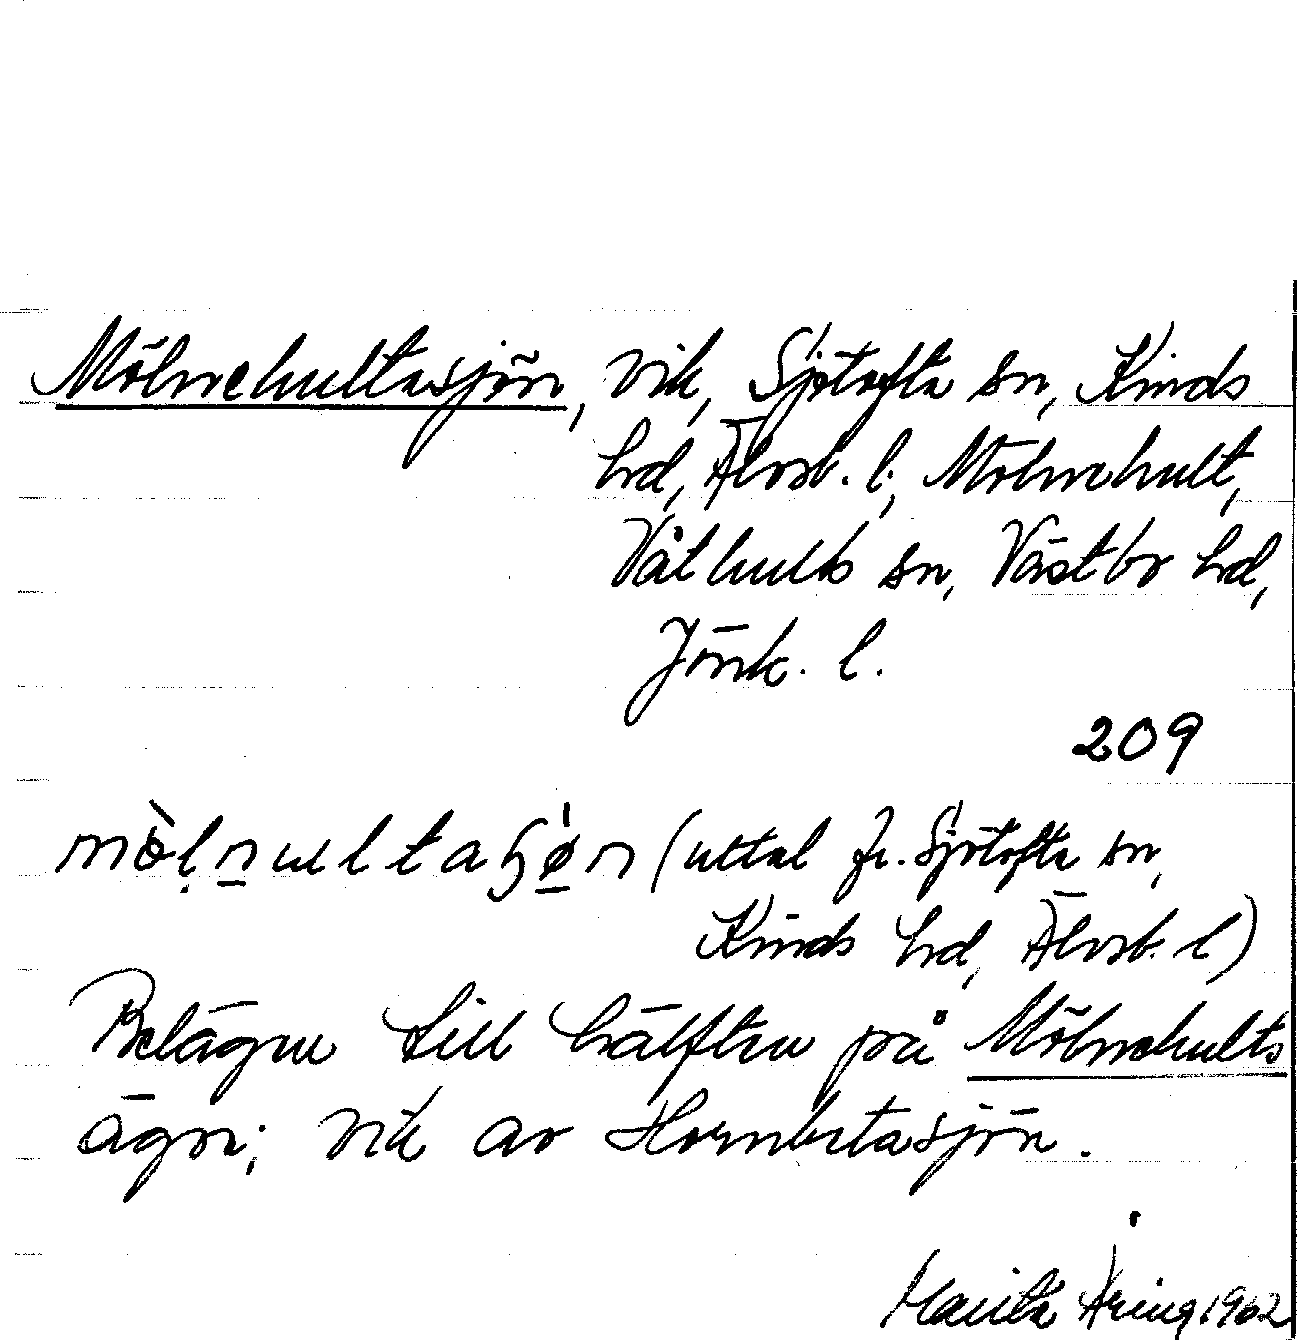 Mölnehultasjön, vik, Sjötofta sn, Kinds
hd, Älvsb. l; Mölnehult,
Våthults sn, Västbo hd,
Jönk. l.
209
(uttal fr. Sjötofta sn,
Kinds hd, Älvsb. l)
Belägen till hälften på Mölnehults
ägor; vik av
Marita Åring 1962